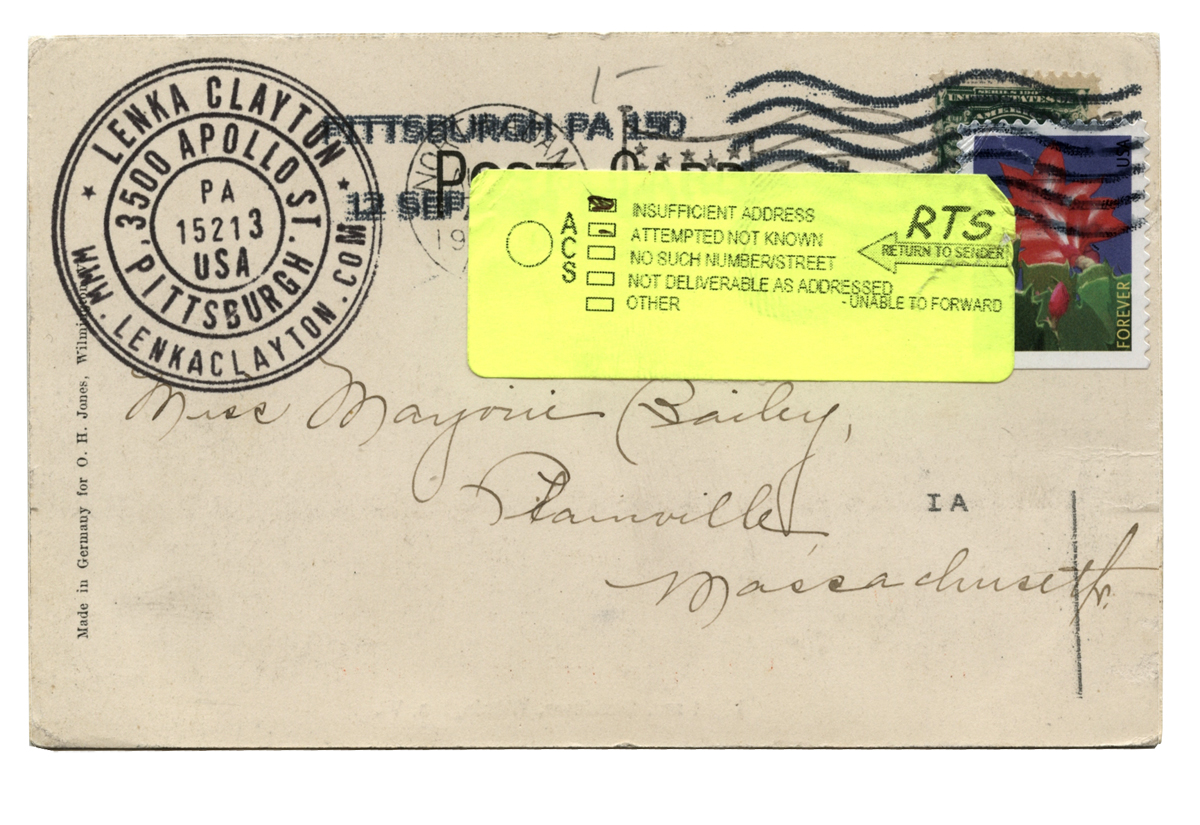 LENKA CLAYTON
3500 APOLLO ST.
PITTSBURGH,
PA
15213
USA
WWW.LENKACLAYTON.COM
PITTSBURGH PA 150
12 SEP
NOV
19
POST CARD
RTS
RETURN TO SENDER
A
C
S
INSUFFICIENT ADDRESS
ATTEMPTED NOT KNOWN
NO SUCH NUMBER/STREET
NOT DELIVERABLE AS ADDRESSED
- UNABLE TO FORWARD
OTHER
USA
FOREVER
Miss Marjorie Bailey,
Plainville,
Massachusetts.
IA
Made in Germany for O. H. Jones,